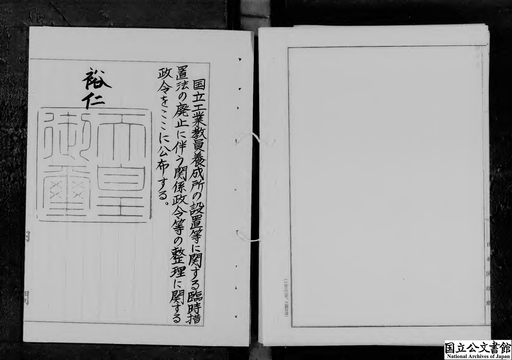 国立工業教員養成所の設置等に関する臨時措
置法の廃止に伴う関係政令等の整理に関する
政令をここに公布する。
裕仁
天皇
御璽
国立公文書館
National Archives of Japan